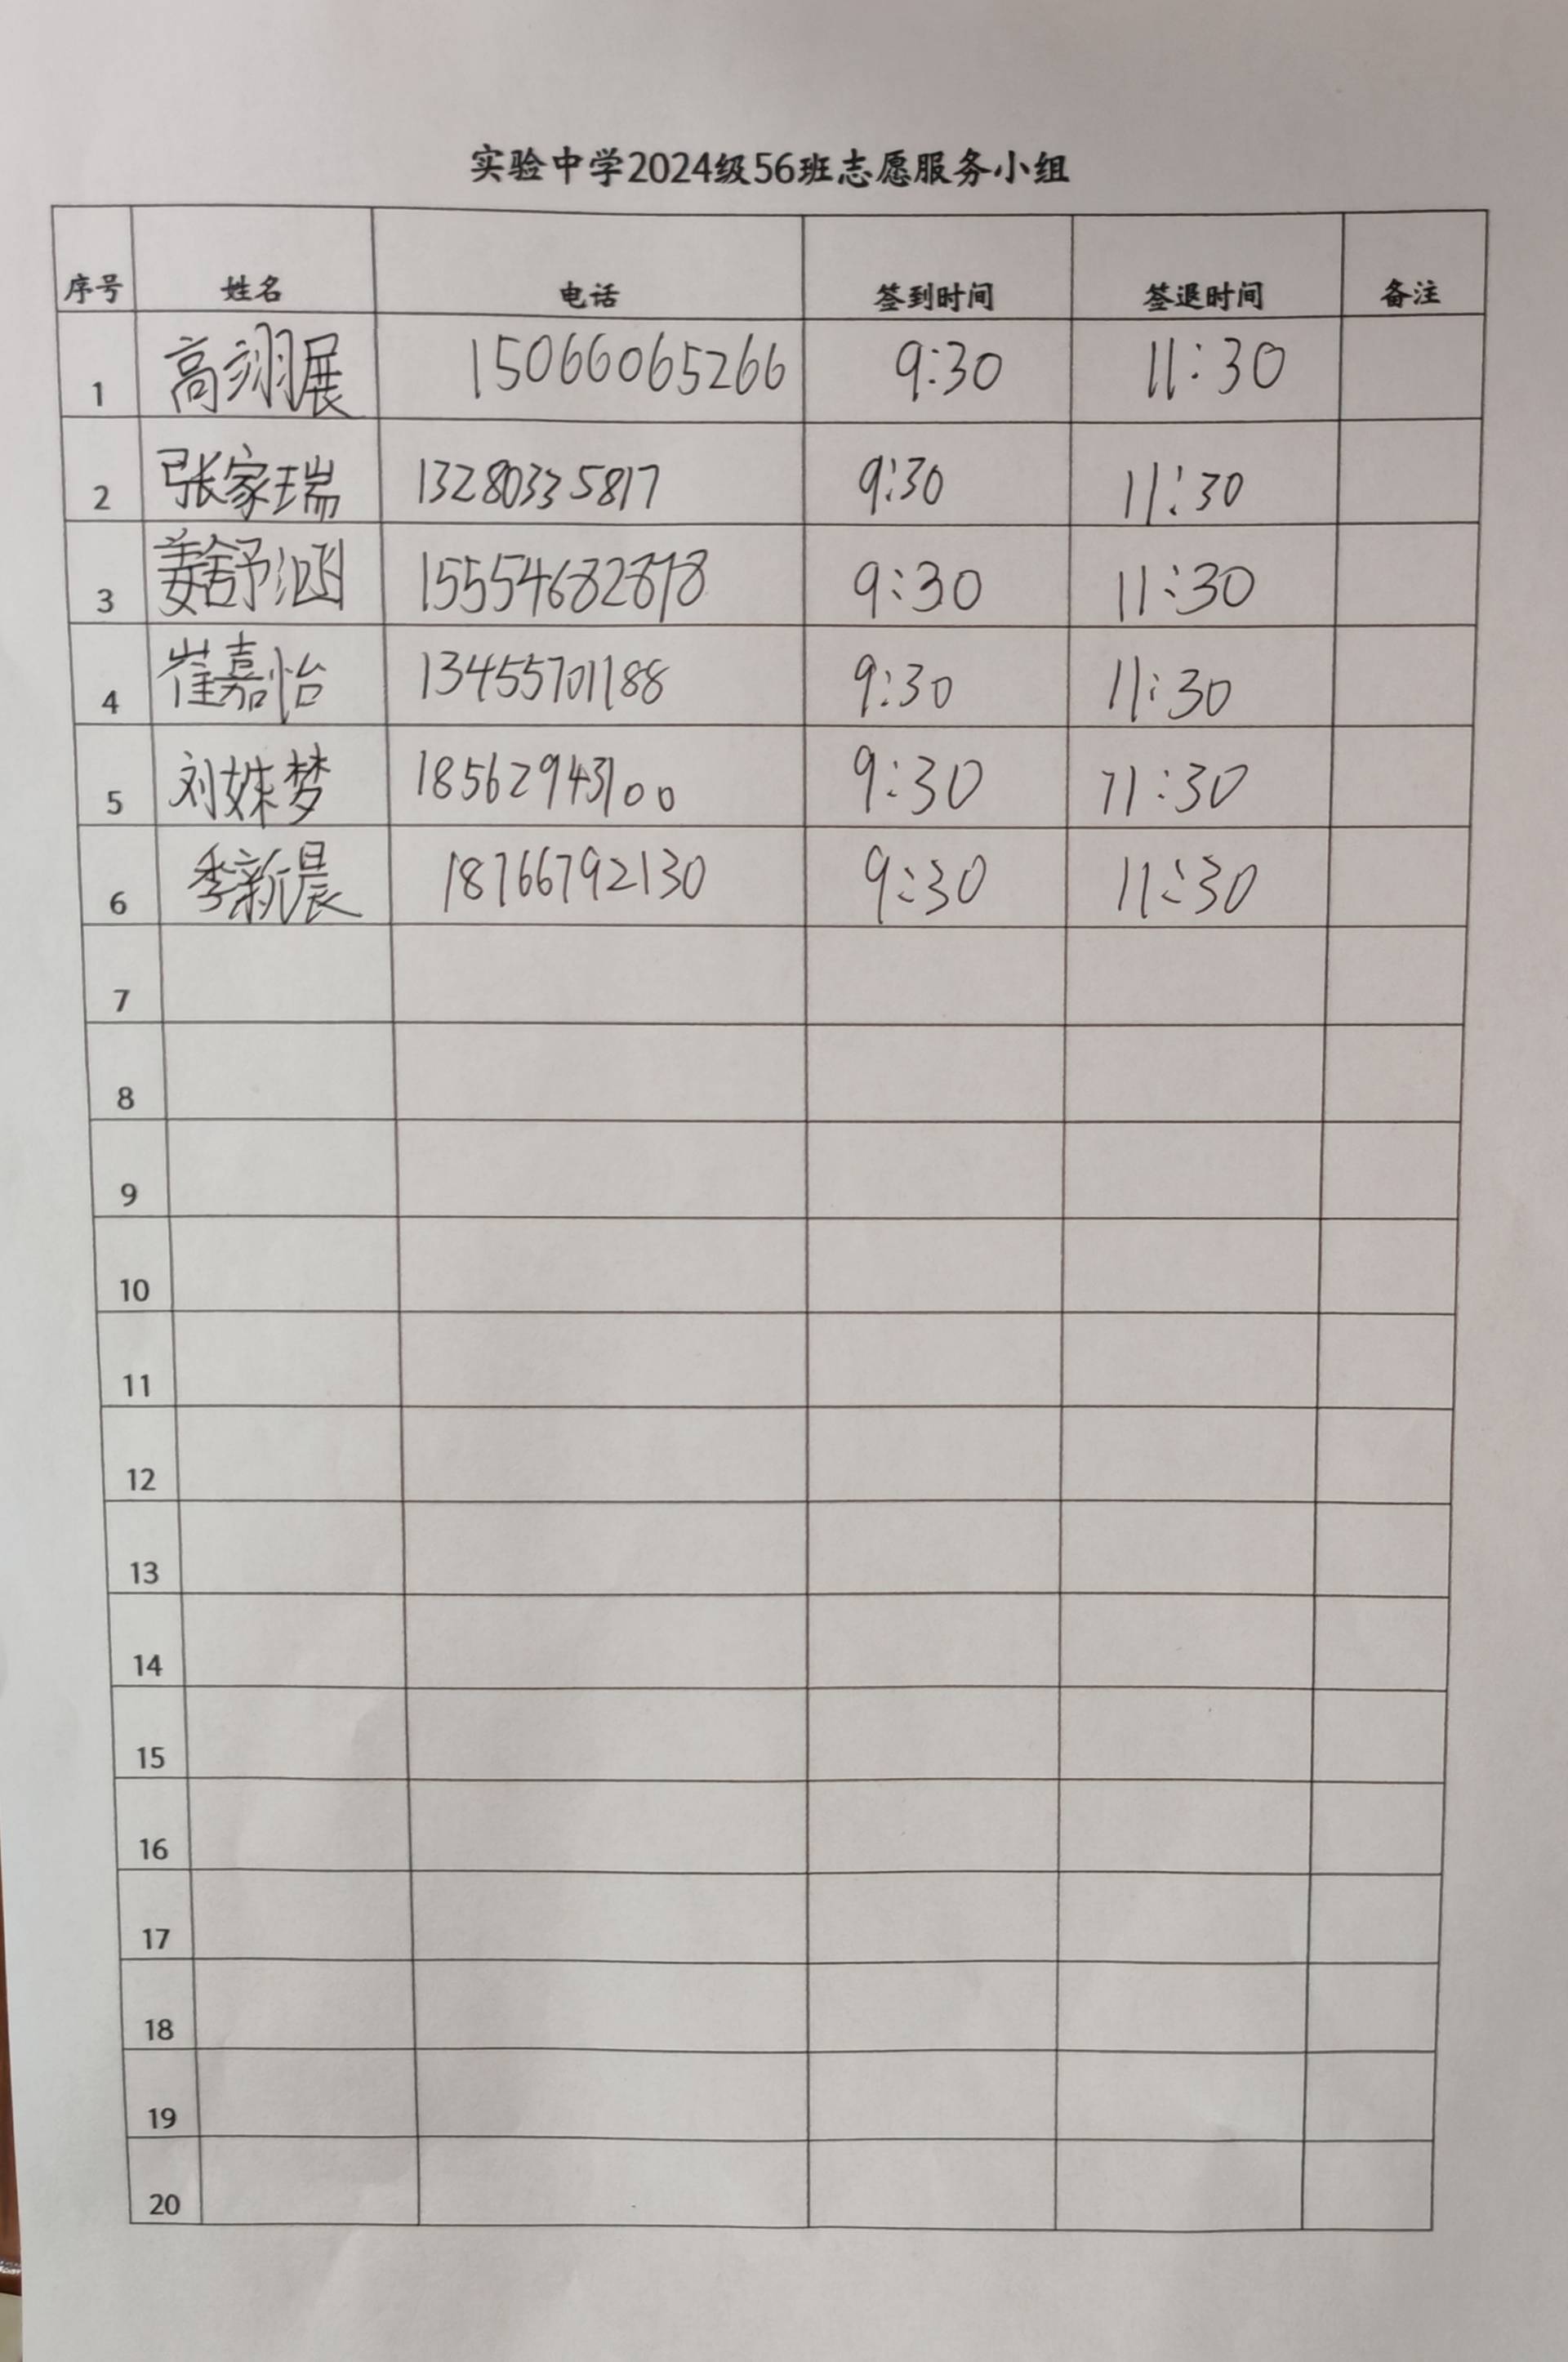 实验中学2024级56班志愿服务小组
序号 姓名 电话 签到时间 签退时间 备注
1 高翊展 15066065266 9:30 11:30
2 张家瑞 13280335817 9:30 11:30
3 姜舒涵 15554682878 9:30 11:30
4 崔嘉怡 13455701188 9:30 11:30
5 刘姝梦 18562943100 9:30 11:30
6 季新晨 18766792130 9:30 11:30
7
8
9
10
11
12
13
14
15
16
17
18
19
20